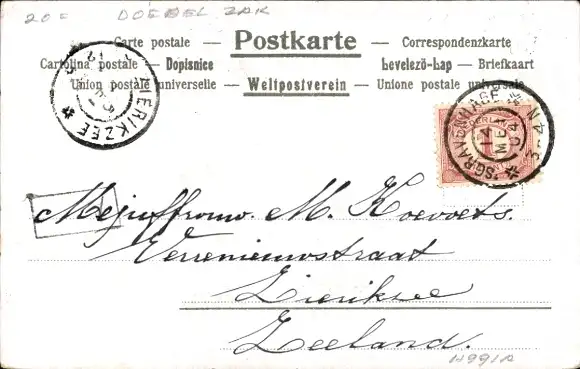 20= DOEBEL ZAK
Carte postale — Postkarte — Correspondenzkarte
Cartolina postale — Dopisnice Levelező-Lap — Briefkaart
Union postale universelle — Weltpostverein — Unione postale universale
ZIERIKZEE
'S GRAVENHAGE
14 MEI 04
3-4N
Mejuffrouw. M. Koevoets.
Verrenieuwstraat
Zierikzee
Zeeland.
H991A